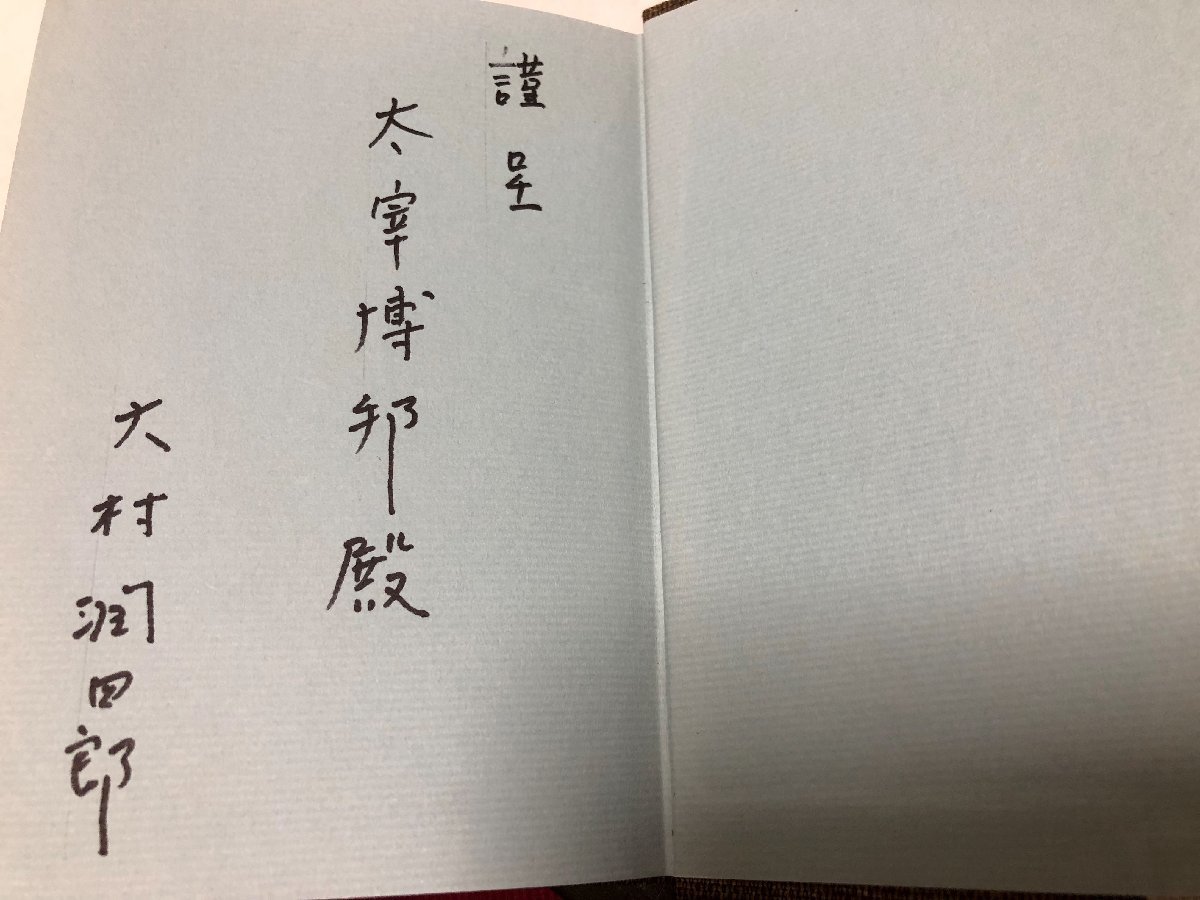 謹呈
太宰博邦殿
大村潤四郎